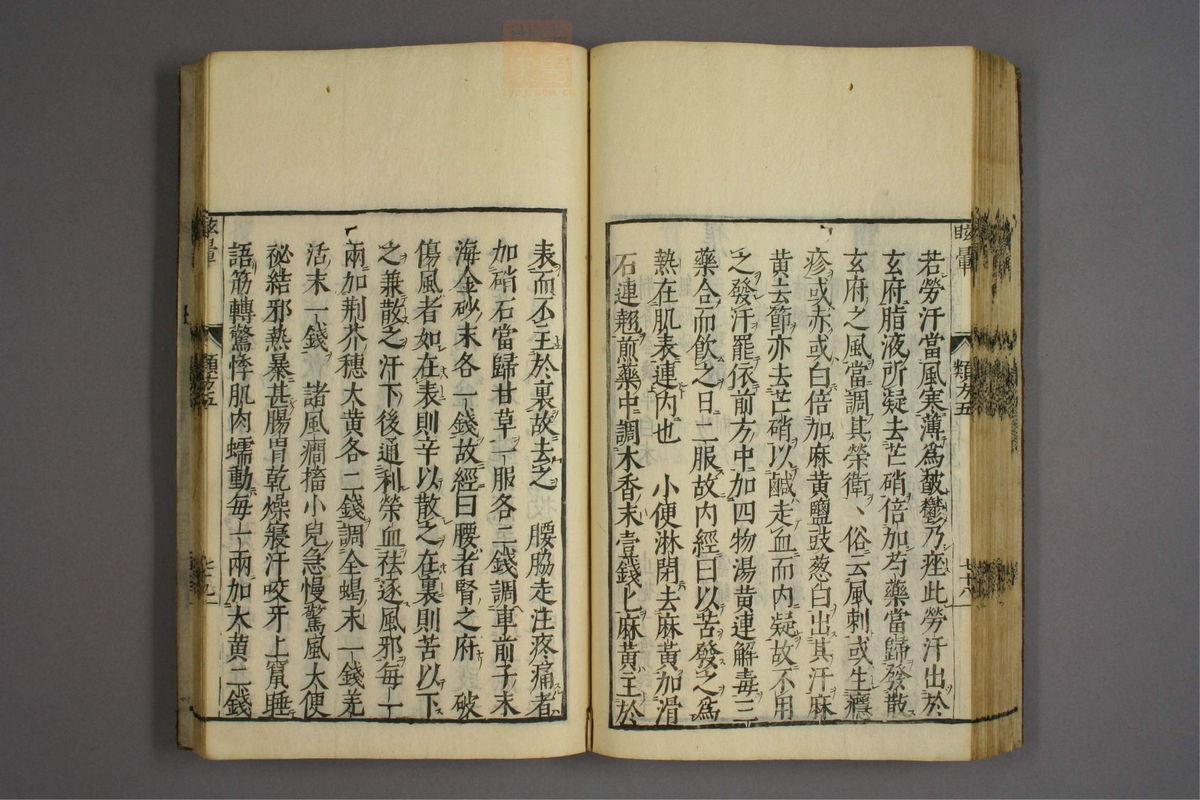 眩暈
類方五
七十八
若勞汗當風寒薄爲皶鬱乃痤此勞汗出於
玄府脂液所凝去芒硝倍加芍藥當歸發散
玄府之風當調其榮衛、俗云風刺或生癮
疹或赤或白倍加麻黄鹽豉葱白出其汗麻
黄去節亦去芒硝以鹹走血而内凝故不用
之發汗罷依前方中加四物湯黄連解毒三
藥合而飲之日二服故内經曰以苦發之爲
熱在肌表連内也　小便淋閉去麻黄加滑
石連翹煎藥中調木香末壹錢匕麻黄主於
表而不主於裏故去之　腰脇走注疼痛者
加硝石當歸甘草一服各二錢調車前子末
海金砂末各一錢故經曰腰者腎之府　破
傷風者如在表則辛以散之在裏則苦以下
之兼散之汗下後通利榮血祛逐風邪毎一
兩加荆芥穗大黄各二錢調全蝎末一錢羌
活末一錢　諸風癎搐小兒急慢驚風大便
祕結邪熱暴甚腸胃乾燥寢汗咬牙上竄睡
語筋轉驚悸肌肉蠕動毎一兩加大黄二錢
眩暈
類方五
七十九